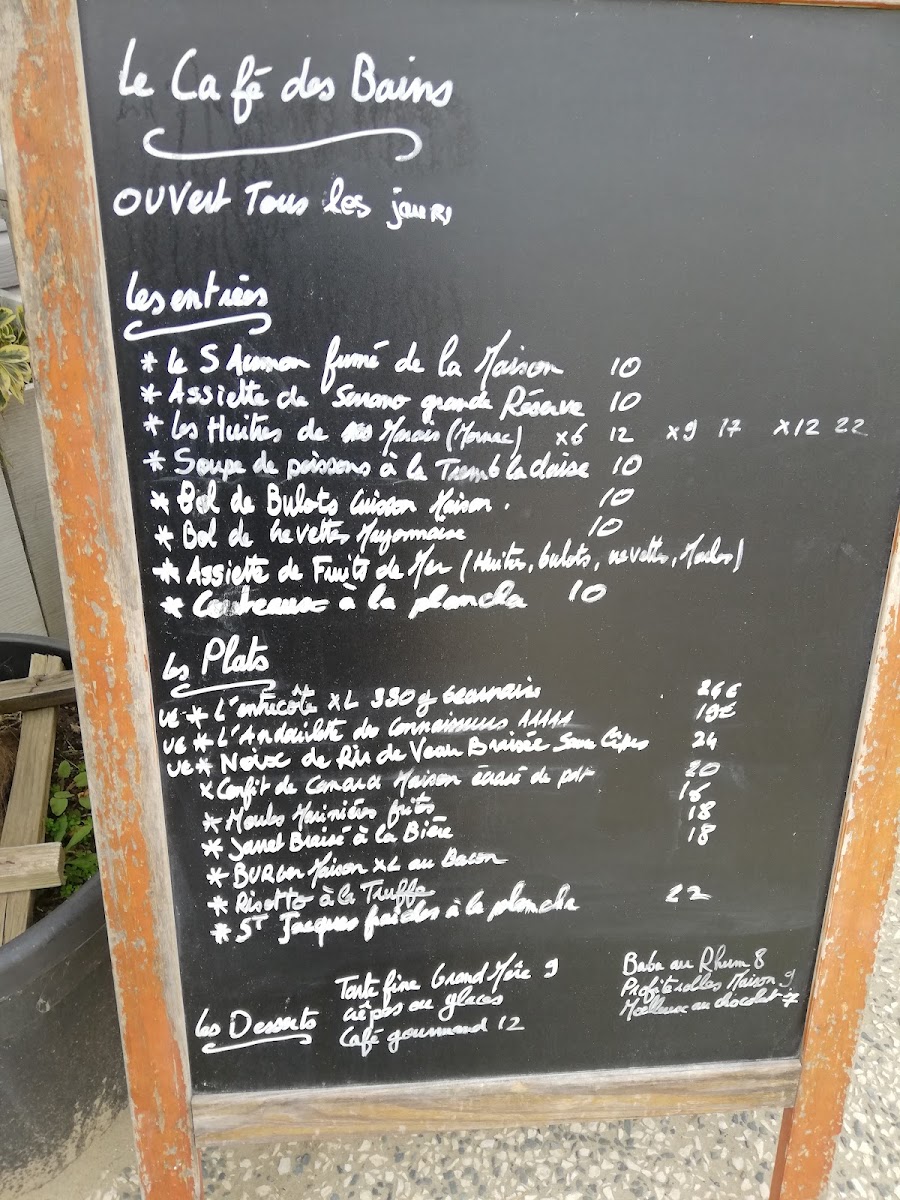 Le Café des Bains
OUVert Tous les jours
les entrées
* le SAumon fumé de la Maison 10
* Assiette de Serrano grande Réserve 10
* les Huitres de Marais (Mornac) x6 12 x9 17 x12 22
* Soupe de poissons à la Trembladaise 10
* Bol de Bulots Cuisson Maison. 10
* Bol de crevettes Mayonnaise 10
* Assiette de Fruits de Mer (Huitres, bulots, crevettes, )
* Couteaux à la plancha 10
les Plats
* L'entrecôte XL 330g bearnaise 26€
* L'Andouillette des Connaisseurs AAAAA 19€
* Noix de Ris de Veau Braisée Sauce Cèpes 24
x Confit de Canard Maison écrasé de pdt 20
* Moules Marinières frites 16
* Jarret Braisé à la Bière 18
* BURGer Maison XL au Bacon 18
* Risotto à la Truffe
* ST Jacques fraiches à la plancha 22
les Desserts
Tarte fine Grand Mère 9
crêpes ou glaces
Café gourmand 12
Baba au Rhum 8
Profiterolles Maison 9
Moelleux au chocolat 7